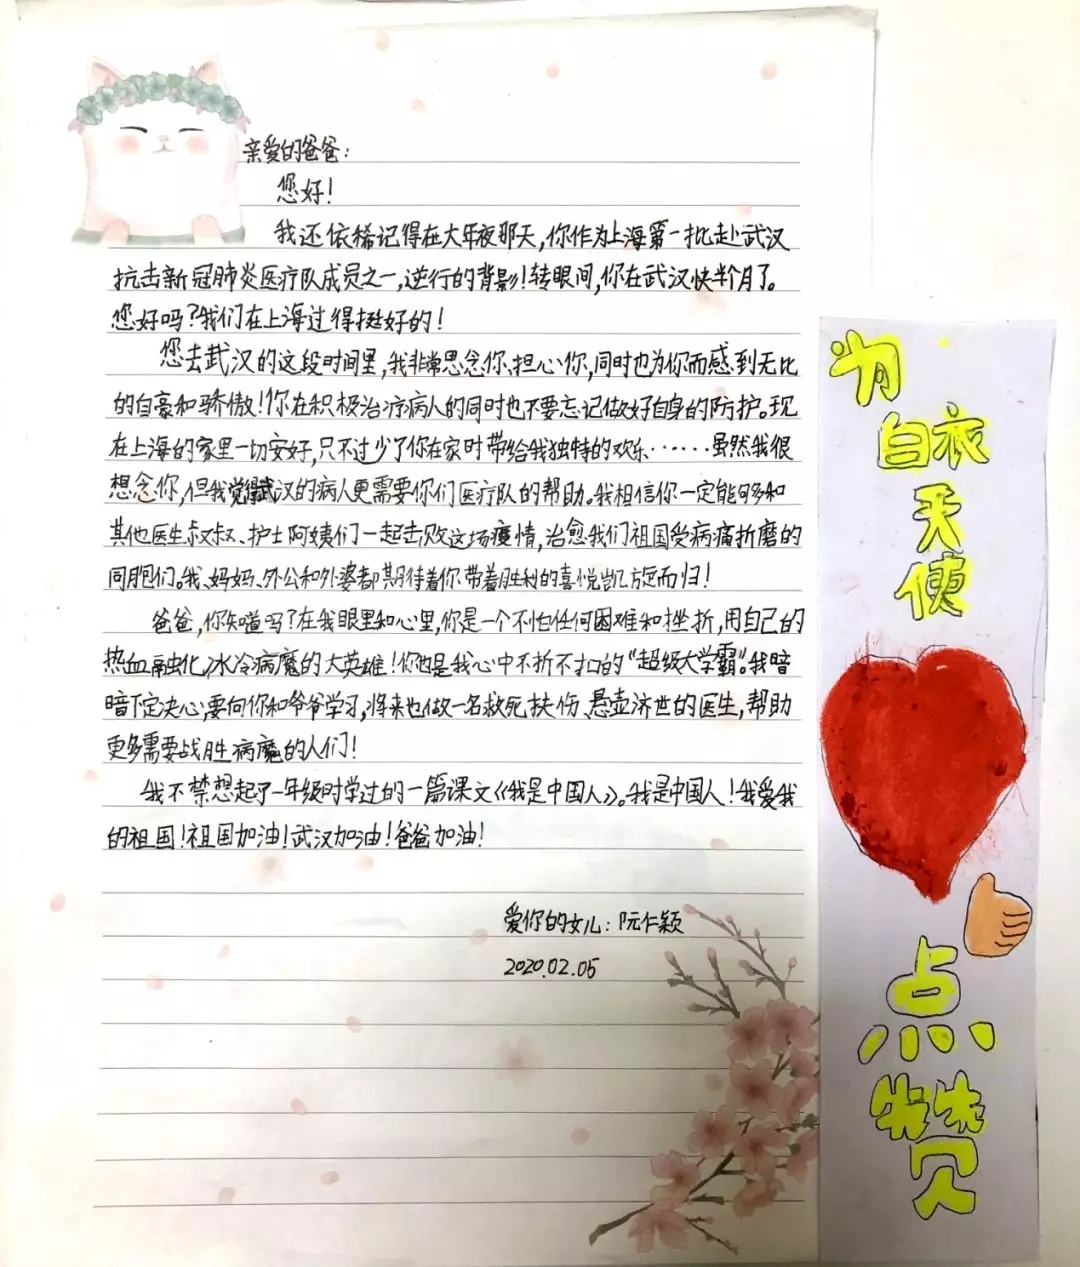 亲爱的爸爸：
您好！
我还依稀记得在大年夜那天，你作为上海第一批赴武汉
抗击新冠肺炎医疗队成员之一，逆行的背影！转眼间，你在武汉快半个月了。
您好吗？我们在上海过得挺好的！
您去武汉的这段时间里，我非常思念你、担心你，同时也为你而感到无比
的自豪和骄傲！你在积极治疗病人的同时也不要忘记做好自身的防护。现
在上海的家里一切安好，只不过少了你在家时带给我独特的欢乐……虽然我很
想念你，但我觉得武汉的病人更需要你们医疗队的帮助。我相信你一定能够和
其他医生叔叔、护士阿姨们一起击败这场疫情，治愈我们祖国受病痛折磨的
同胞们。我、妈妈、外公和外婆都期待着你带着胜利的喜悦凯旋而归！
爸爸，你知道吗？在我眼里和心里，你是一个不怕任何困难和挫折，用自己的
热血融化冰冷病魔的大英雄！你也是我心中不折不扣的“超级大学霸”。我暗
暗下定决心，要向你和爷爷学习，将来也做一名救死扶伤、悬壶济世的医生，帮助
更多需要战胜病魔的人们！
我不禁想起了一年级时学过的一篇课文《我是中国人》。我是中国人！我爱我
的祖国！祖国加油！武汉加油！爸爸加油！
爱你的女儿：阮仁颖
2020.02.05
为
白衣
天
使
点
赞